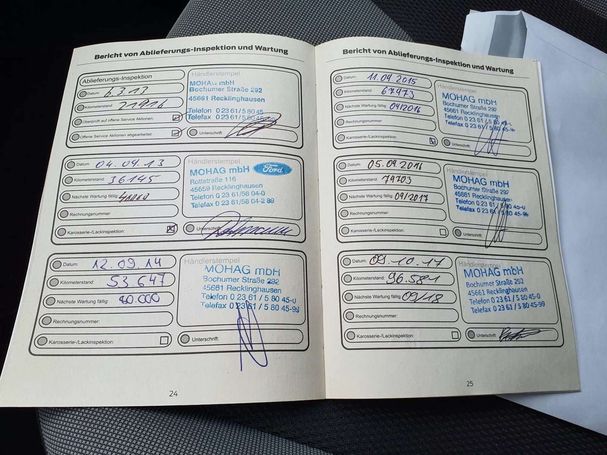 Bericht von Ablieferungs-Inspektion und Wartung
Ablieferungs-Inspektion
Datum: 6.3.13
Kilometerstand: 21916
Überprüft auf offene Service Aktionen:
Offene Service Aktionen abgearbeitet:
Händlerstempel
MOHAG mbH
Bochumer Straße 292
45661 Recklinghausen
Telefon 0 23 61 / 5 80 45-0
Telefax 0 23 61 / 5 80 45-
Unterschrift:
Datum: 04.04.13
Kilometerstand: 36145
Nächste Wartung fällig:
Rechnungsnummer:
Karosserie-/Lackinspektion:
Händlerstempel
MOHAG mbH Ford
Rottstraße 116
45659 Recklinghausen
Telefon 0 23 61/58 04-0
Telefax 0 23 61/58 04-2 88
Unterschrift:
Datum: 12.09.14
Kilometerstand: 53.647
Nächste Wartung fällig: 80.000
Rechnungsnummer:
Karosserie-/Lackinspektion:
Händlerstempel
MOHAG mbH
Bochumer Straße 292
45661 Recklinghausen
Telefon 0 23 61 / 5 80 45-0
Telefax 0 23 61 / 5 80 45-99
Unterschrift:
24
Bericht von Ablieferungs-Inspektion und Wartung
Datum: 11.09.2015
Kilometerstand: 67473
Nächste Wartung fällig: 09/2016
Rechnungsnummer:
Karosserie-/Lackinspektion:
Händlerstempel
MOHAG mbH
Bochumer Straße 292
45661 Recklinghausen
Telefon 0 23 61 / 5 80 45-0
Telefax 0 23 61 / 5 80 45-99
Unterschrift:
Datum: 05.09.2016
Kilometerstand: 79703
Nächste Wartung fällig: 09/2017
Rechnungsnummer:
Karosserie-/Lackinspektion:
Händlerstempel
MOHAG mbH
Bochumer Straße 292
45661 Recklinghausen
Telefon 0 23 61 / 5 80 45-0
Telefax 0 23 61 / 5 80 45-99
Unterschrift:
Datum: 09.10.17
Kilometerstand: 96.581
Nächste Wartung fällig: 09/18
Rechnungsnummer:
Karosserie-/Lackinspektion:
Händlerstempel
MOHAG mbH
Bochumer Straße 292
45661 Recklinghausen
Telefon 0 23 61 / 5 80 45-0
Telefax 0 23 61 / 5 80 45-99
Unterschrift:
25